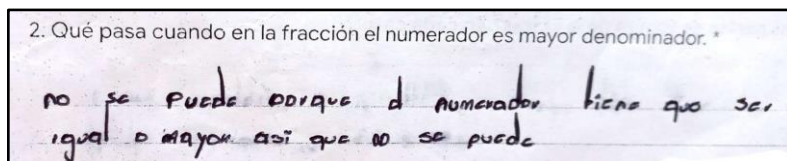 2. Qué pasa cuando en la fracción el numerador es mayor denominador. *
no se puede porque el numerador tiene que ser
igual o mayor asi que no se puede